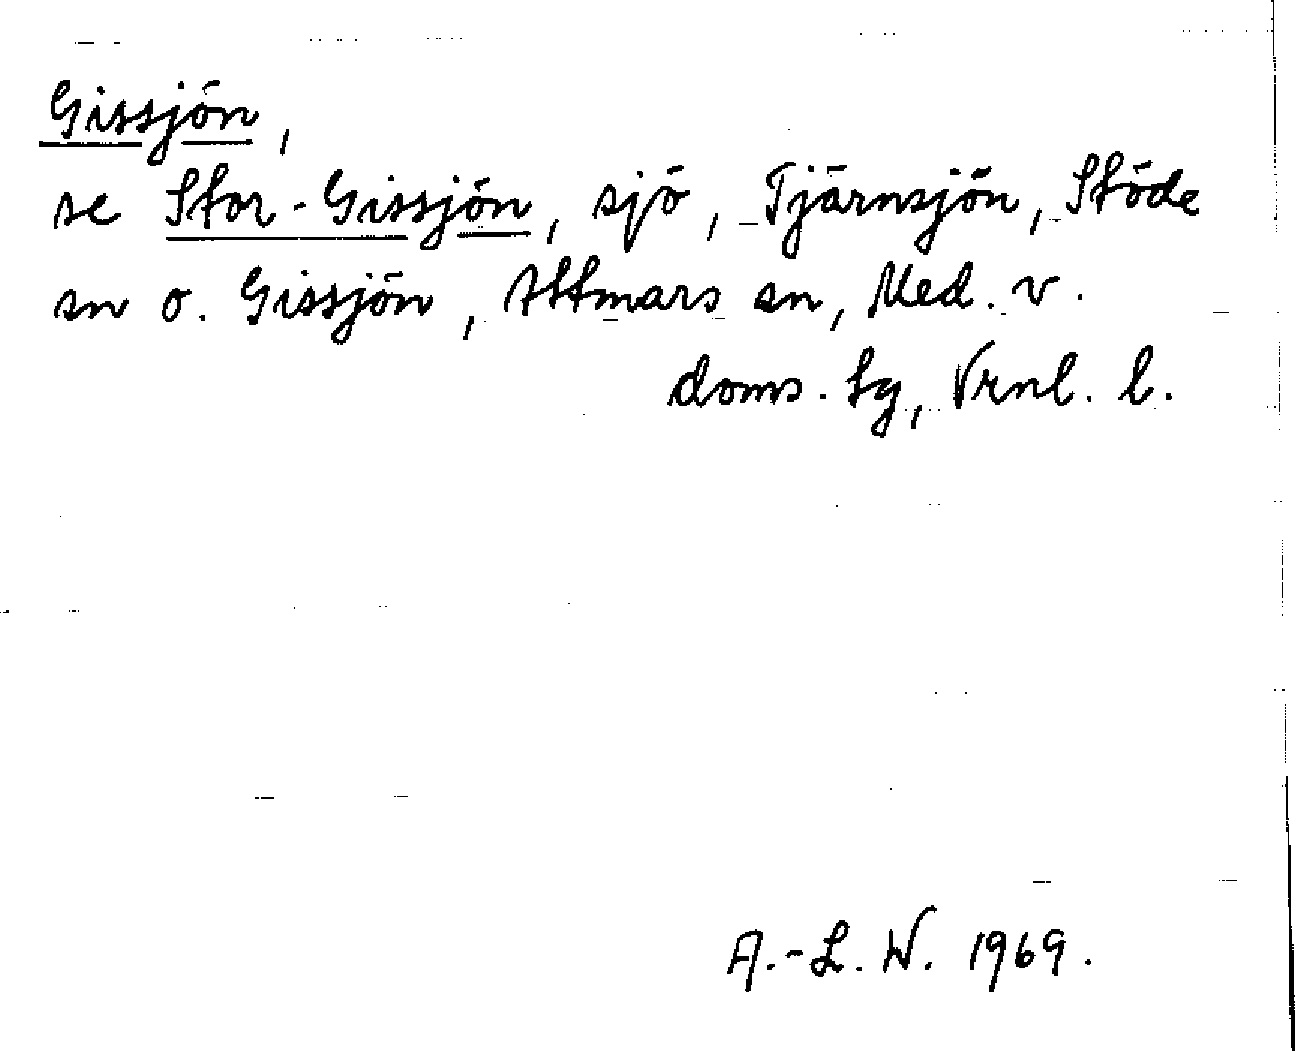 Gissjön,
se Stor-Gissjön, sjö, Tjärnsjön, Stöde
sn o. Gissjön, Attmars sn, Med. v.
doms. tg, Vrnl. l.
A.-L. W. 1969.